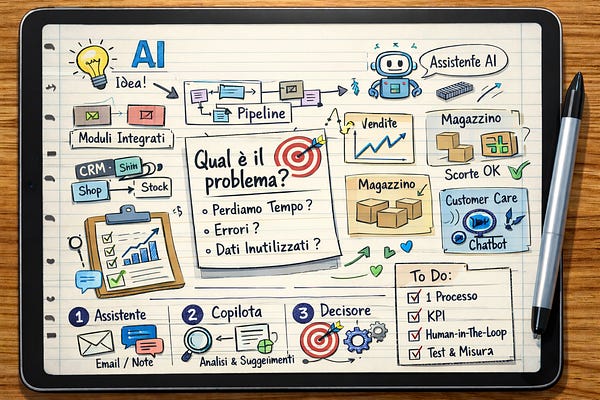 AI
Idea!
Pipeline
Assistente AI
Moduli Integrati
CRM
Shop
Stock
Qual è il
problema?
Perdiamo Tempo?
Errori?
Dati Inutilizzati?
Vendite
Magazzino
Scorte OK
Magazzino
Customer Care
Chatbot
1 Assistente
Email / Note
2 Copilota
Analisi & Suggerimenti
3 Decisore
To Do:
1 Processo
KPI
Human-in-The-Loop
Test & Misura